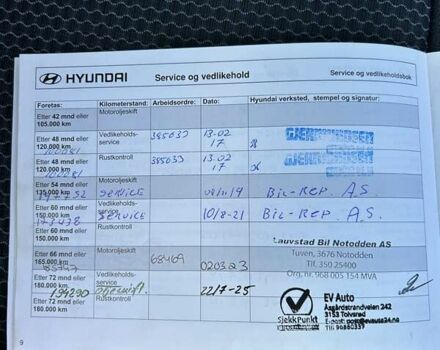 HYUNDAI
Service og vedlikehold
Service og vedlikeholdsbok
Foretas: Kilometerstand: Arbeidsordre: Dato: Hyundai verksted, stempel og signatur:
Etter 42 mnd eller Motoroljeskift
105.000 km
Etter 48 mnd eller Vedlikeholds- 385633 13.02
120.000 km service 17
Etter 48 mnd eller Rustkontroll 385633 13.02
120.000 km 17
Etter 54 mnd eller Motoroljeskift
135.000 km SERVICE BIL-REP. A.S
Etter 60 mnd eller Vedlikeholds-
150.000 km SERVICE 10/8-21 BIL-REP. A.S.
173478
Etter 60 mnd eller Rustkontroll
150.000 km
Etter 66 mnd eller Motoroljeskift 68469 020323
165.000 km
Lauvstad Bil Notodden AS
Tuven, 3676 Notodden
Tlf. 350 25400
Org. nr. 968 005 154 MVA
Etter 72 mnd eller Vedlikeholds-
180.000 km service 22/7-25
194290
Etter 72 mnd eller Rustkontroll
180.000 km
SjekkPunkt
EV Auto
Åsgårdstrandveien 242
3153 Tolvsrød
E-post: post@evauto24.no
Tlf 90860337
9